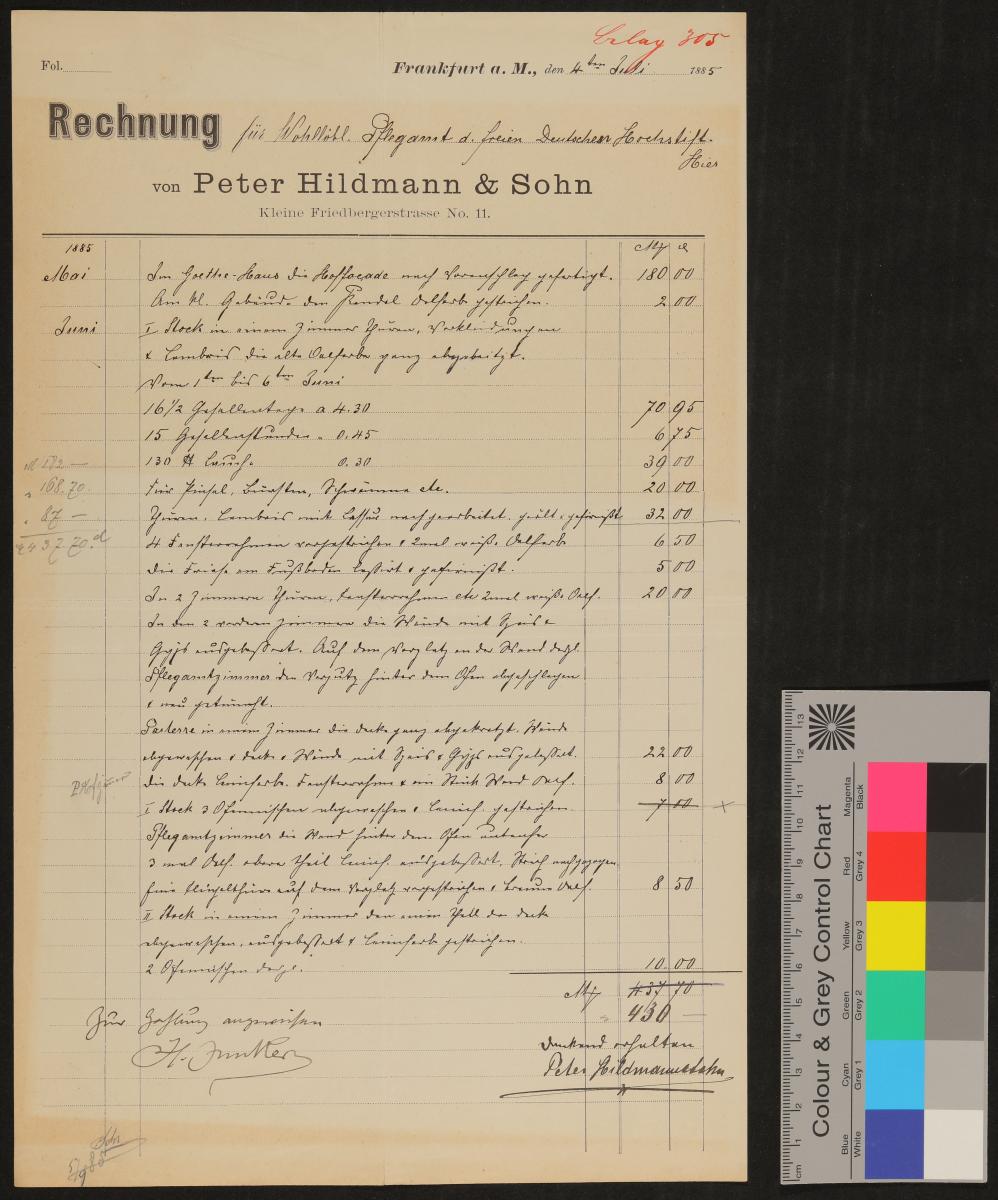 belag 305
Fol.
Frankfurt a. M., den 4ten Juli 1885
Rechnung für Wohllöbl. Pflegamt d. freien Deutschen Hochstift.
Hier
von Peter Hildmann & Sohn
Kleine Friedbergerstrasse No. 11.
1885 M ₰
Mai Im Goethe-Haus die Hoffacade nach Voranschlag gefertigt. 180 00
Am kl. Gebäude den Kandel Oelfarb gestrichen. 2 00
Juni I Stock in einem Zimmer Thüren, Verkleidungen
& Lambris die alte Oelfarbe ganz abgebeitzt.
Vom 1ten bis 6ten Juni
16 1/2 Gesellentage a 4.30 70 95
15 Gesellenstunden " 0.45 6 75
130 ℔ Laug. 0.30 39 00
Für Pinsel, Bürsten, Schwämme etc. 20 00
Thüren, Lambris mit Lassur nachgearbeitet, geölt & gefirnißt 32 00
4 Fensterrahmen vorgestrichen & 2mal weiße Oelfarb 6 50
die Friese am Fußboden lassirt & gefirnißt. 5 00
In 2 Zimmern Thüren, Fensterrahmen etc 2mal weiße Oelf. 20 00
In den 2 vordern Zimmern die Wände mit Speis &
Gyps ausgebessert. Auf dem Vorplatz an der Wand degl.
Pflegamtzimmer den Verputz hinter dem Ofen abgeschlagen
& neu getüncht.
Parterre in einem Zimmer die decke ganz abgekratzt. Wände
abgewaschen & decke & Wände mit Speis & Gyps ausgebessert. 22 00
die decke Leimfarbe. Fensterrahme & ein Stück Wand Oelf. 8 00
I Stock 3 Ofennischen abgewaschen & Leimf. gestrichen. 7 00 +
Pflegamtzimmer die Wand hinter dem Ofen untenher
3 mal Oelf. obere Theil Leimf. ausgebessert, Strich nachgezogen
Eine Flügelthüre auf dem Vorplatz vorgestrichen & braune Oelf. 8 50
II Stock in einem Zimmer den einen Theil der decke
abgewaschen, ausgebessert & Leimfarb gestrichen.
2 Ofennischen degl. 10.00
M 437 70
" 430 —
M 182 —
" 168.70.
" 87 —
437 70
Zur Zahlung angewiesen
H. Junker
dankend erhalten
Peter Hildmann & Sohn
Colour & Grey Control Chart
Blue Cyan Green Yellow Red Magenta
White Grey 1 Grey 2 Grey 3 Grey 4 Black
cm 1 2 3 4 5 6 7 8 9 10 11 12 13